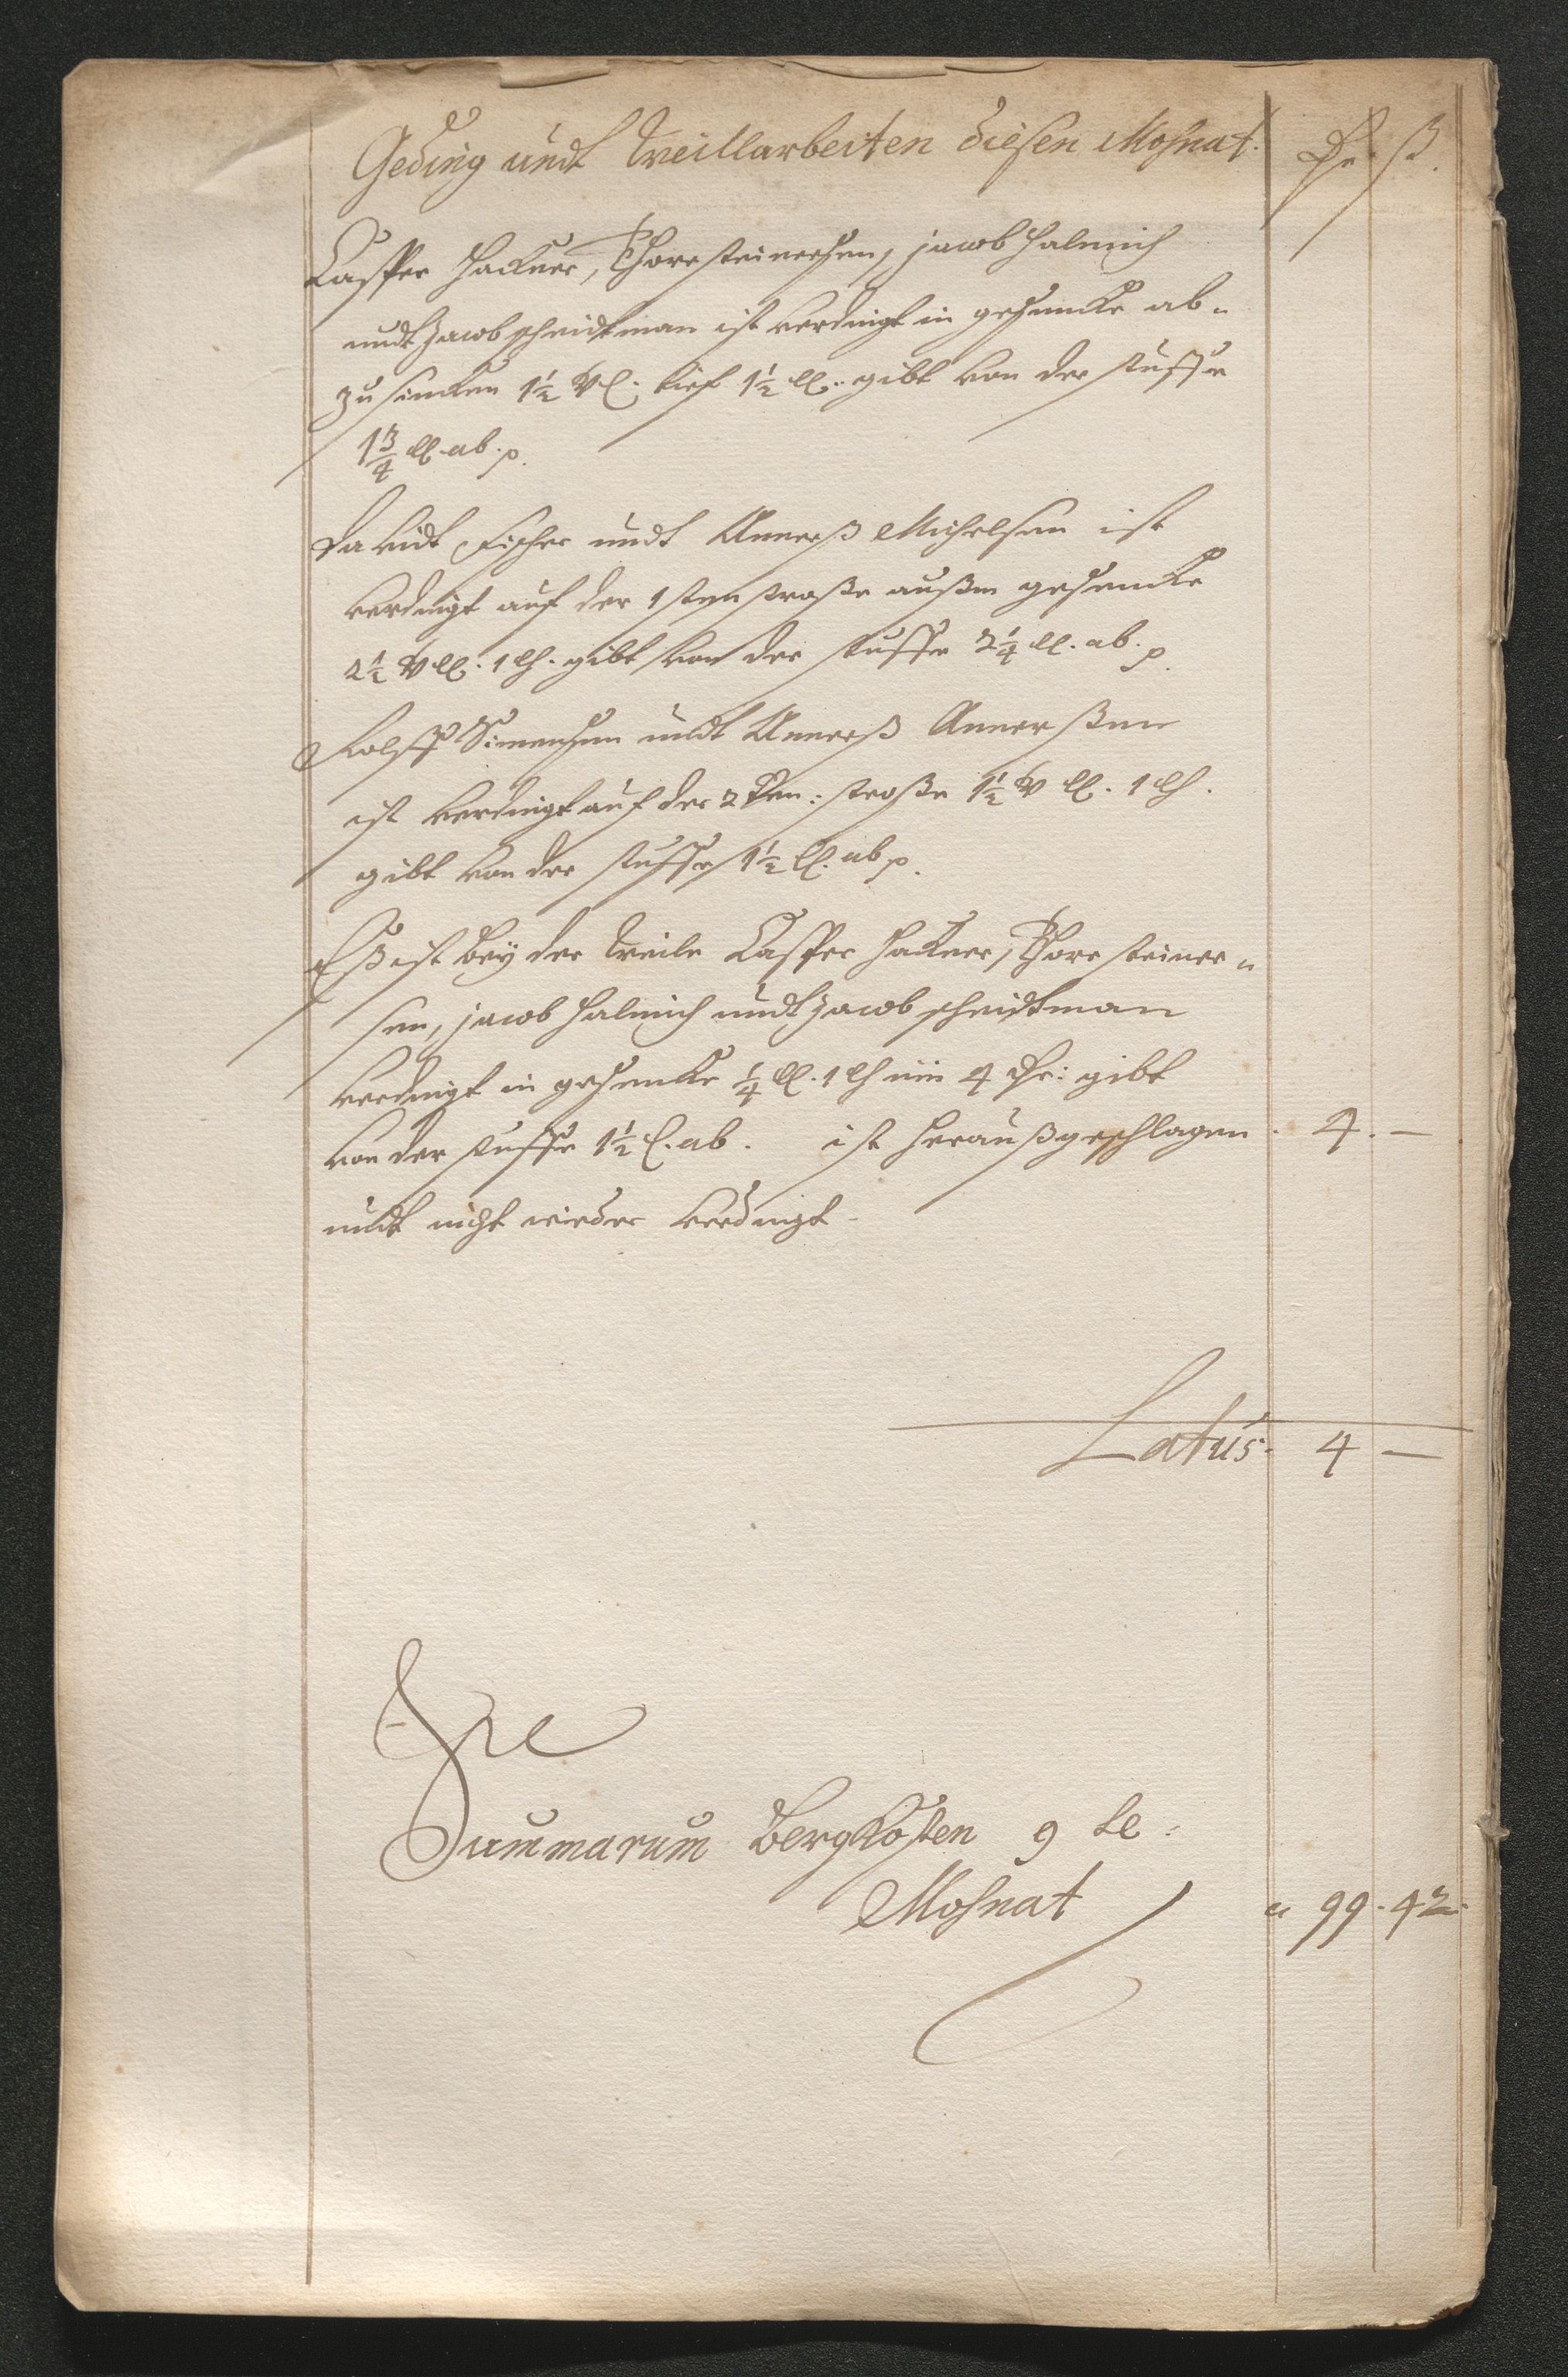 Geding undt Weillarbeiten diesen Mohnat. Rr ß.
Casper Hackner, Thore steinersen, jacob Halmich
undt Jacob scheidtman ist verdingt in gesencke ab-
zu sincken 1½ tief 1½ gibt von der stuffe
1¾ ab. p.
Davidt Fischer undt Anners Michelsen ist
verdingt auf der 1sten strosse aussm gesencke
2½ 1 lh. gibt von der stuffe 2¼ ll. ab. p.
Rolff Simensen undt Anners Annerssen
ist verdingt auf der 2ten: strosse 1½ ll. 1 lh.
gibt von der stuffe 1½ ll. ab p.
Eß ist bey der Weile Casper Hackner, Thore steiner-
sen, jacob Halmich undt Jacob scheidtman
verdingt in gesencke ¼ ll. 1 lh üm 4 Rr: gibt
von der stuffe 1½ l. ab. ist herausgeschlagen. 4. —
undt nicht wieder verdingt.
Latus. 4 —
Summarum Bergkosten 9 te:
Mohnat " 99. 42.